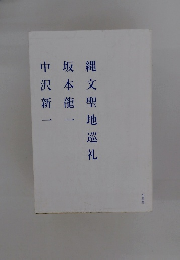 縄文聖地巡礼
坂本龍一
中沢新一